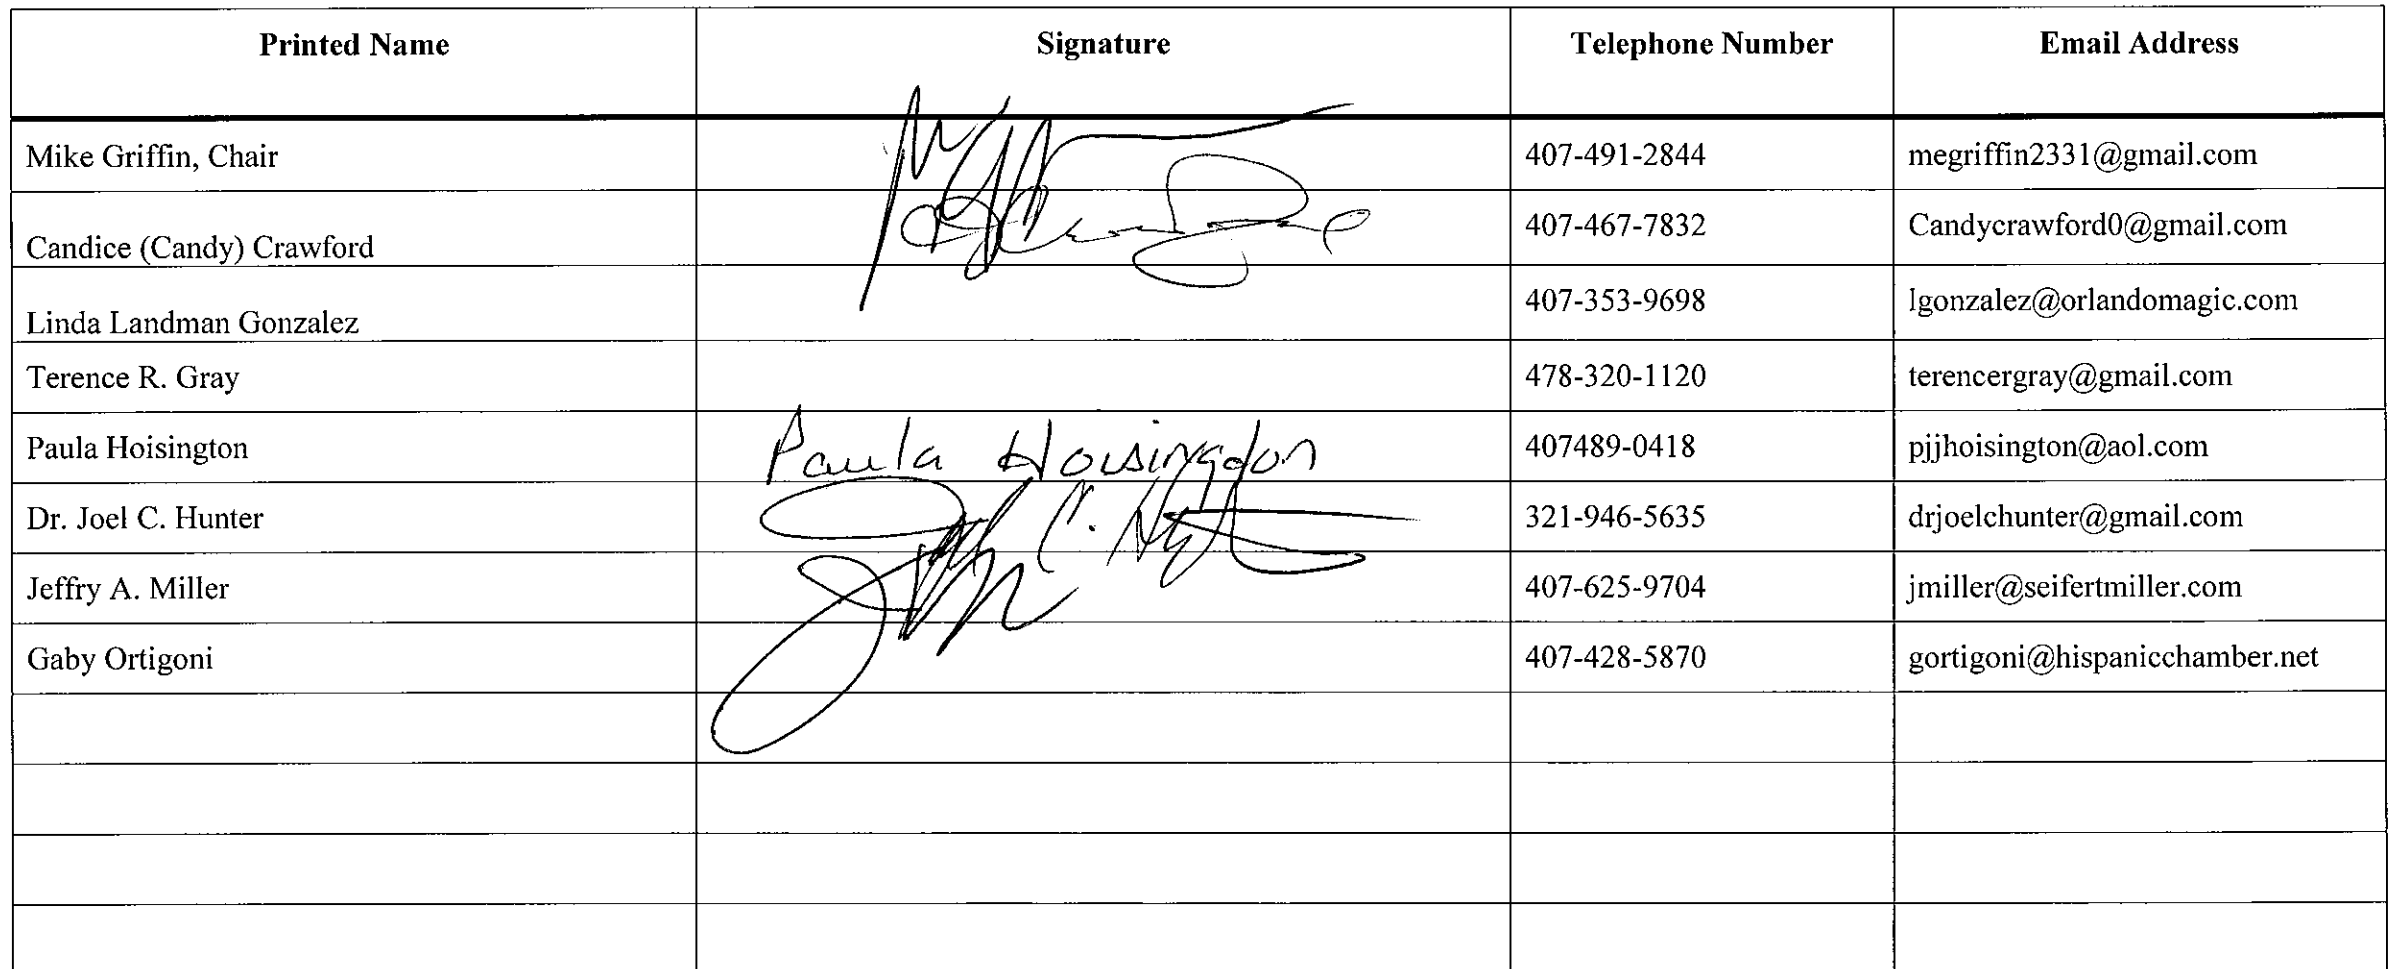 Printed Name Signature Telephone Number Email Address
Mike Griffin, Chair 407-491-2844 megriffin2331@gmail.com
Candice (Candy) Crawford 407-467-7832 Candycrawford0@gmail.com
Linda Landman Gonzalez 407-353-9698 lgonzalez@orlandomagic.com
Terence R. Gray 478-320-1120 terencergray@gmail.com
Paula Hoisington Paula Hoisington 407489-0418 pjjhoisington@aol.com
Dr. Joel C. Hunter C. 321-946-5635 drjoelchunter@gmail.com
Jeffry A. Miller 407-625-9704 jmiller@seifertmiller.com
Gaby Ortigoni 407-428-5870 gortigoni@hispanicchamber.net